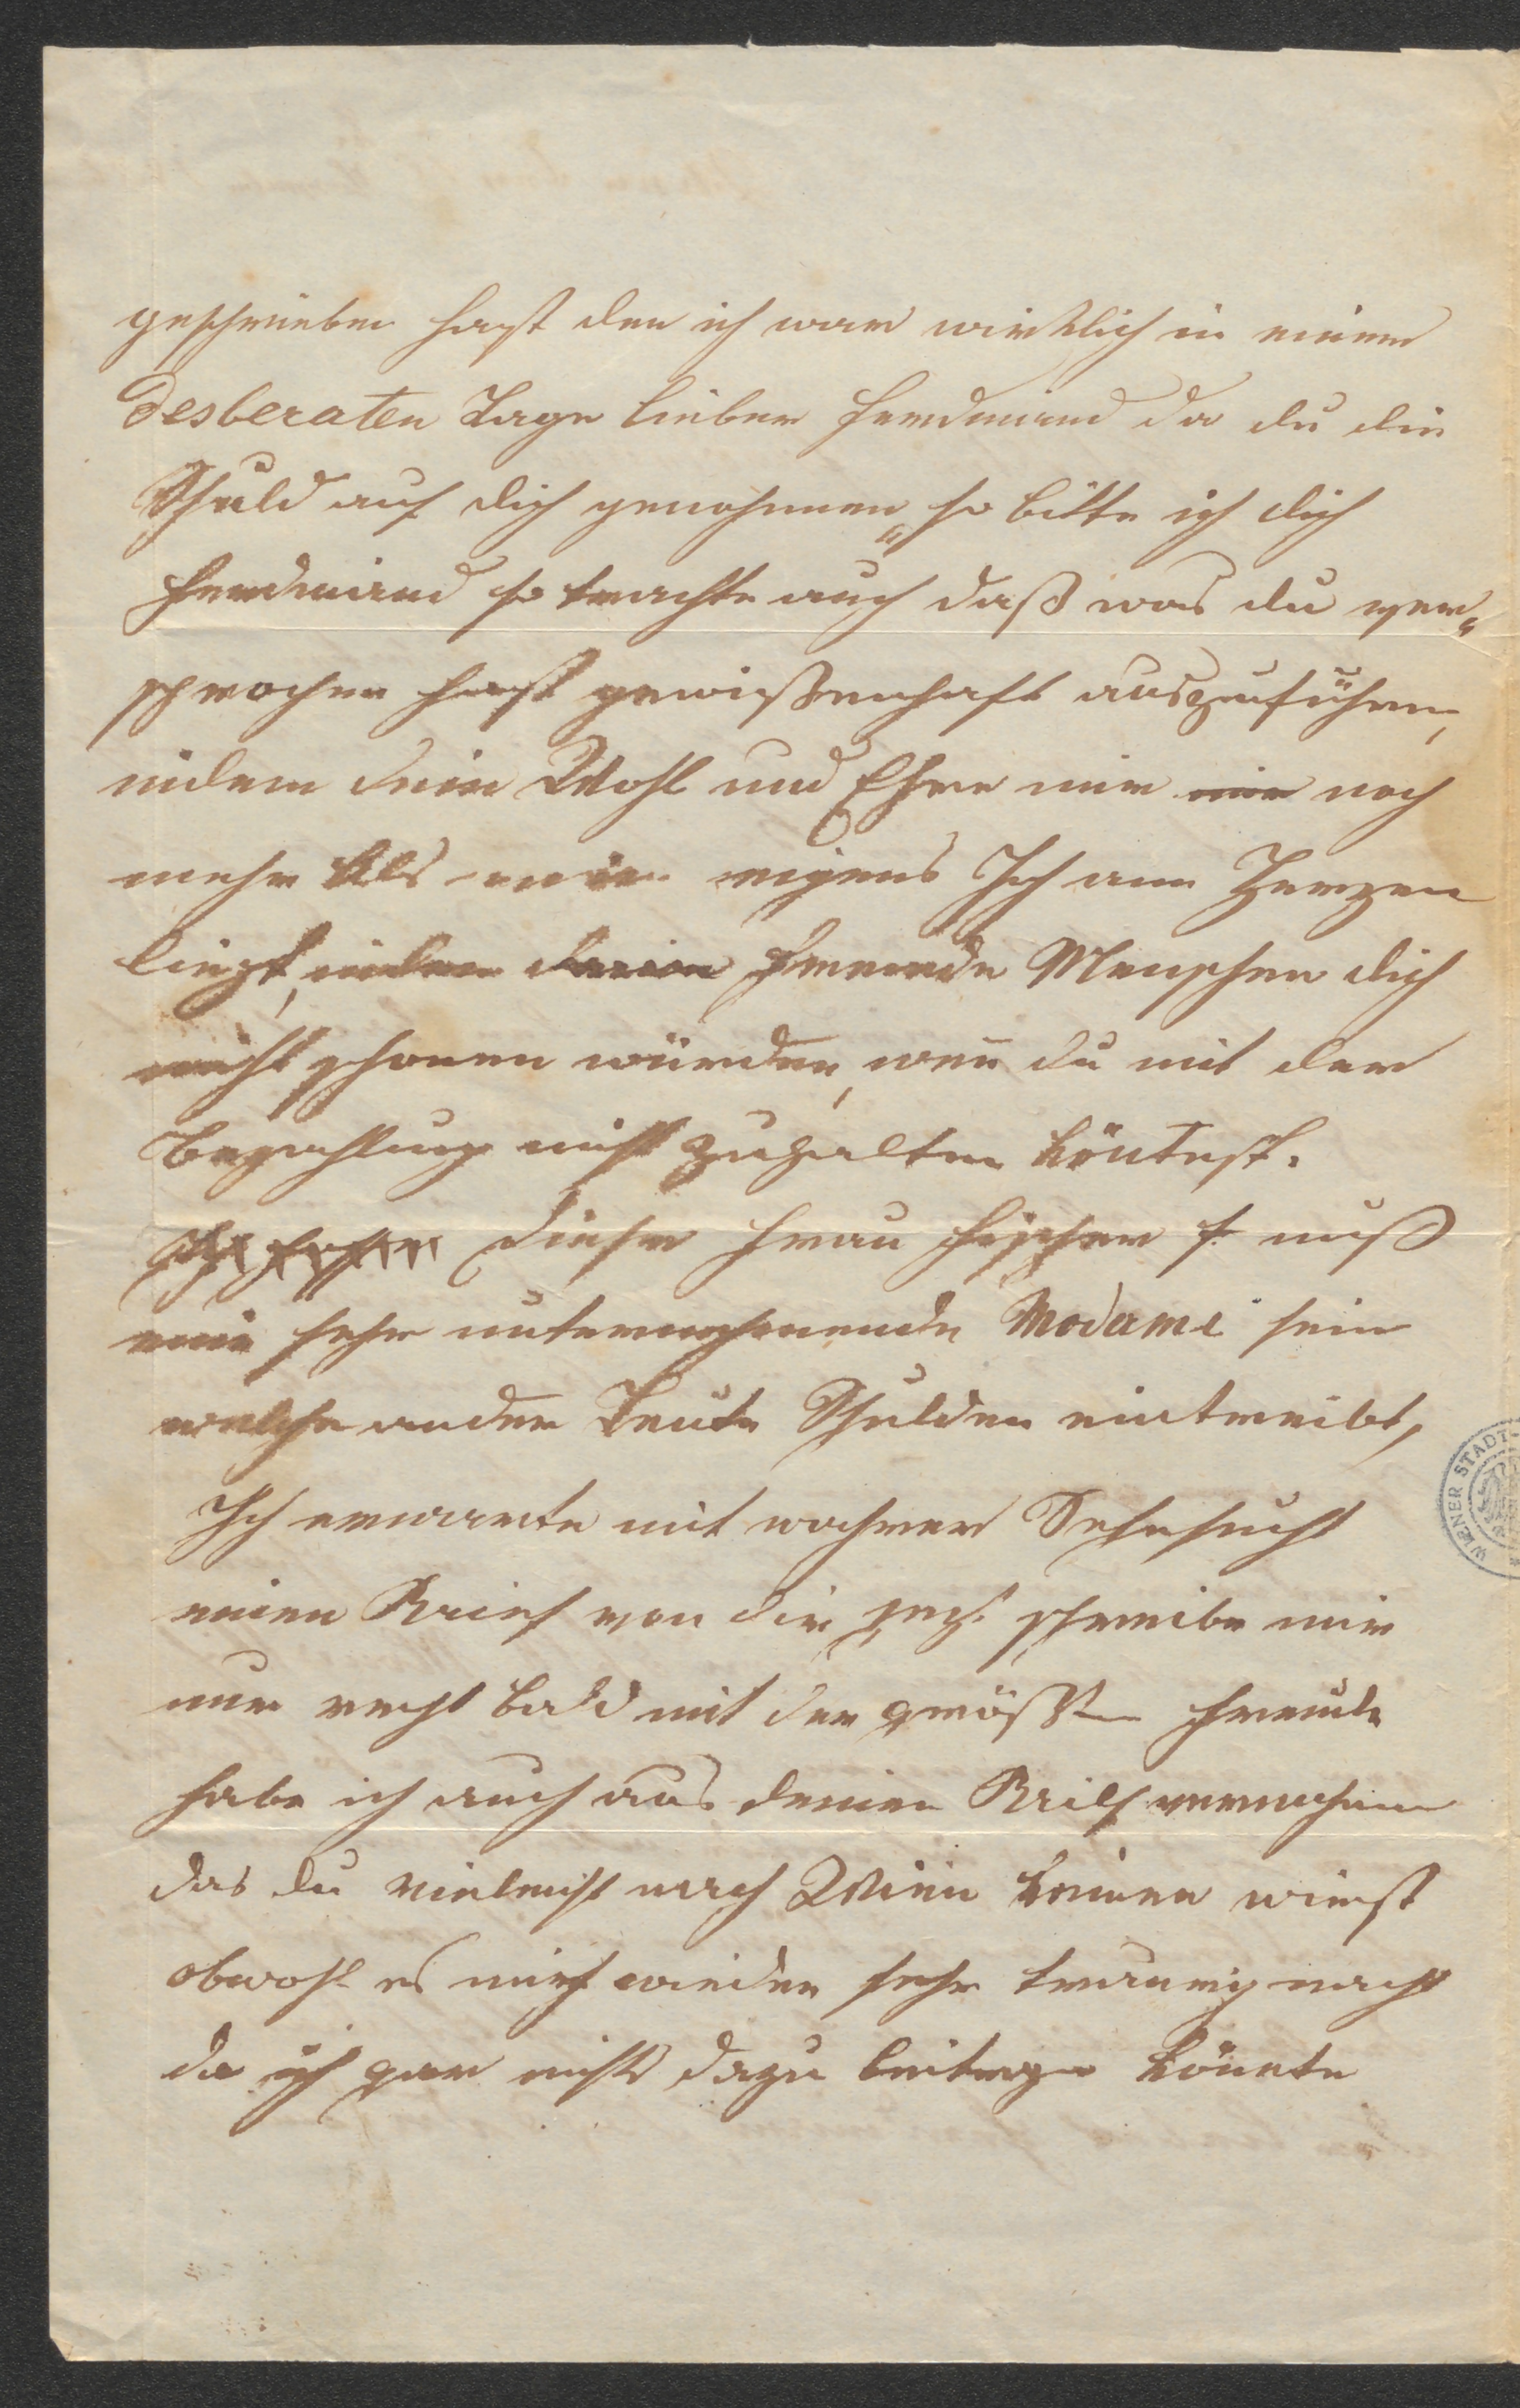 geschrieben hast den ich war wirklich in einer
Desberaten Lage lieber Ferdinand da du die
Schuld auf dich genohmen, so bitte ich dich
Ferdinand so trachte auch daß was du ver„
sprochen hast gewißenhaft auszuführen,
indem dein Wohl und Ehre mir mir noch
mehr als mein eigenes Ich am Herzen
liegt, indem deine fremde Menschen dich
nicht schonen würden, wen̅ du mit der
Bezahlung nicht zuhalten köntest.
Diese Frau Fischer muß
eine sehr unternehmende Madame sein
welche ander Leute Schulden eintreibt,
Ich erwarte mit wahrer Sehnsucht
einen Brief von dir schreibe mir
nur recht bald mit der größten Freude
habe ich auch aus deinen Brief vernohmen
das du vieleicht nach Wien komen wirst
obwohl es mich wieder sehr traurig macht
da ich gar nichts dazu beitragen könnte
WIENER STADT-